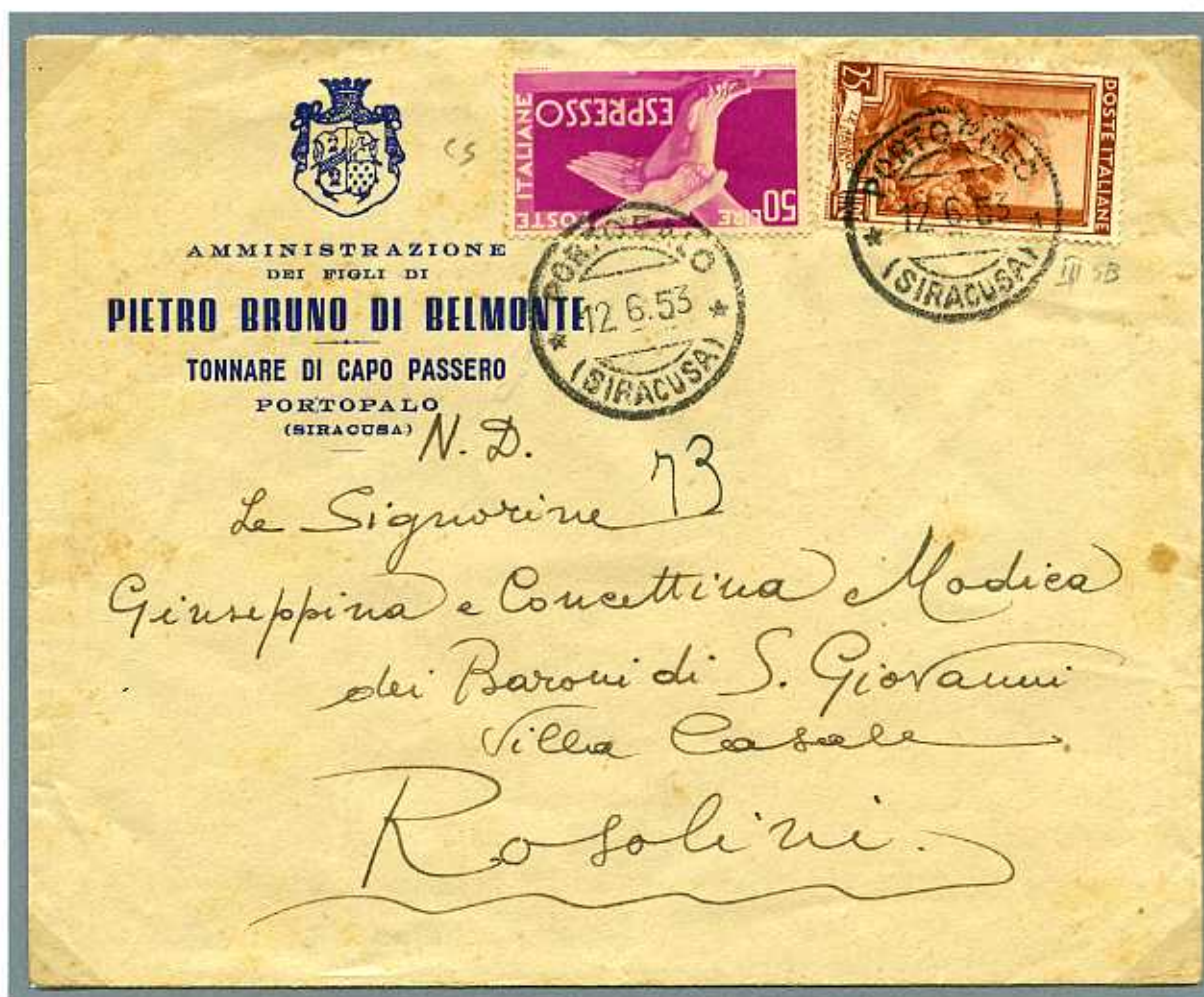 AMMINISTRAZIONE
DEI FIGLI DI
PIETRO BRUNO DI BELMONTE
TONNARE DI CAPO PASSERO
PORTOPALO
(SIRACUSA)
CS
50 LIRE
POSTE ITALIANE
ESPRESSO
POSTE ITALIANE
25
PORTOPALO
12.6.53
(SIRACUSA)
PORTOPALO
12.6.53
(SIRACUSA)
III SB
N. D.
73
Le Signorine
Giuseppina e Concettina Modica
dei Baroni di S. Giovanni
Villa Casale
Rosolini.